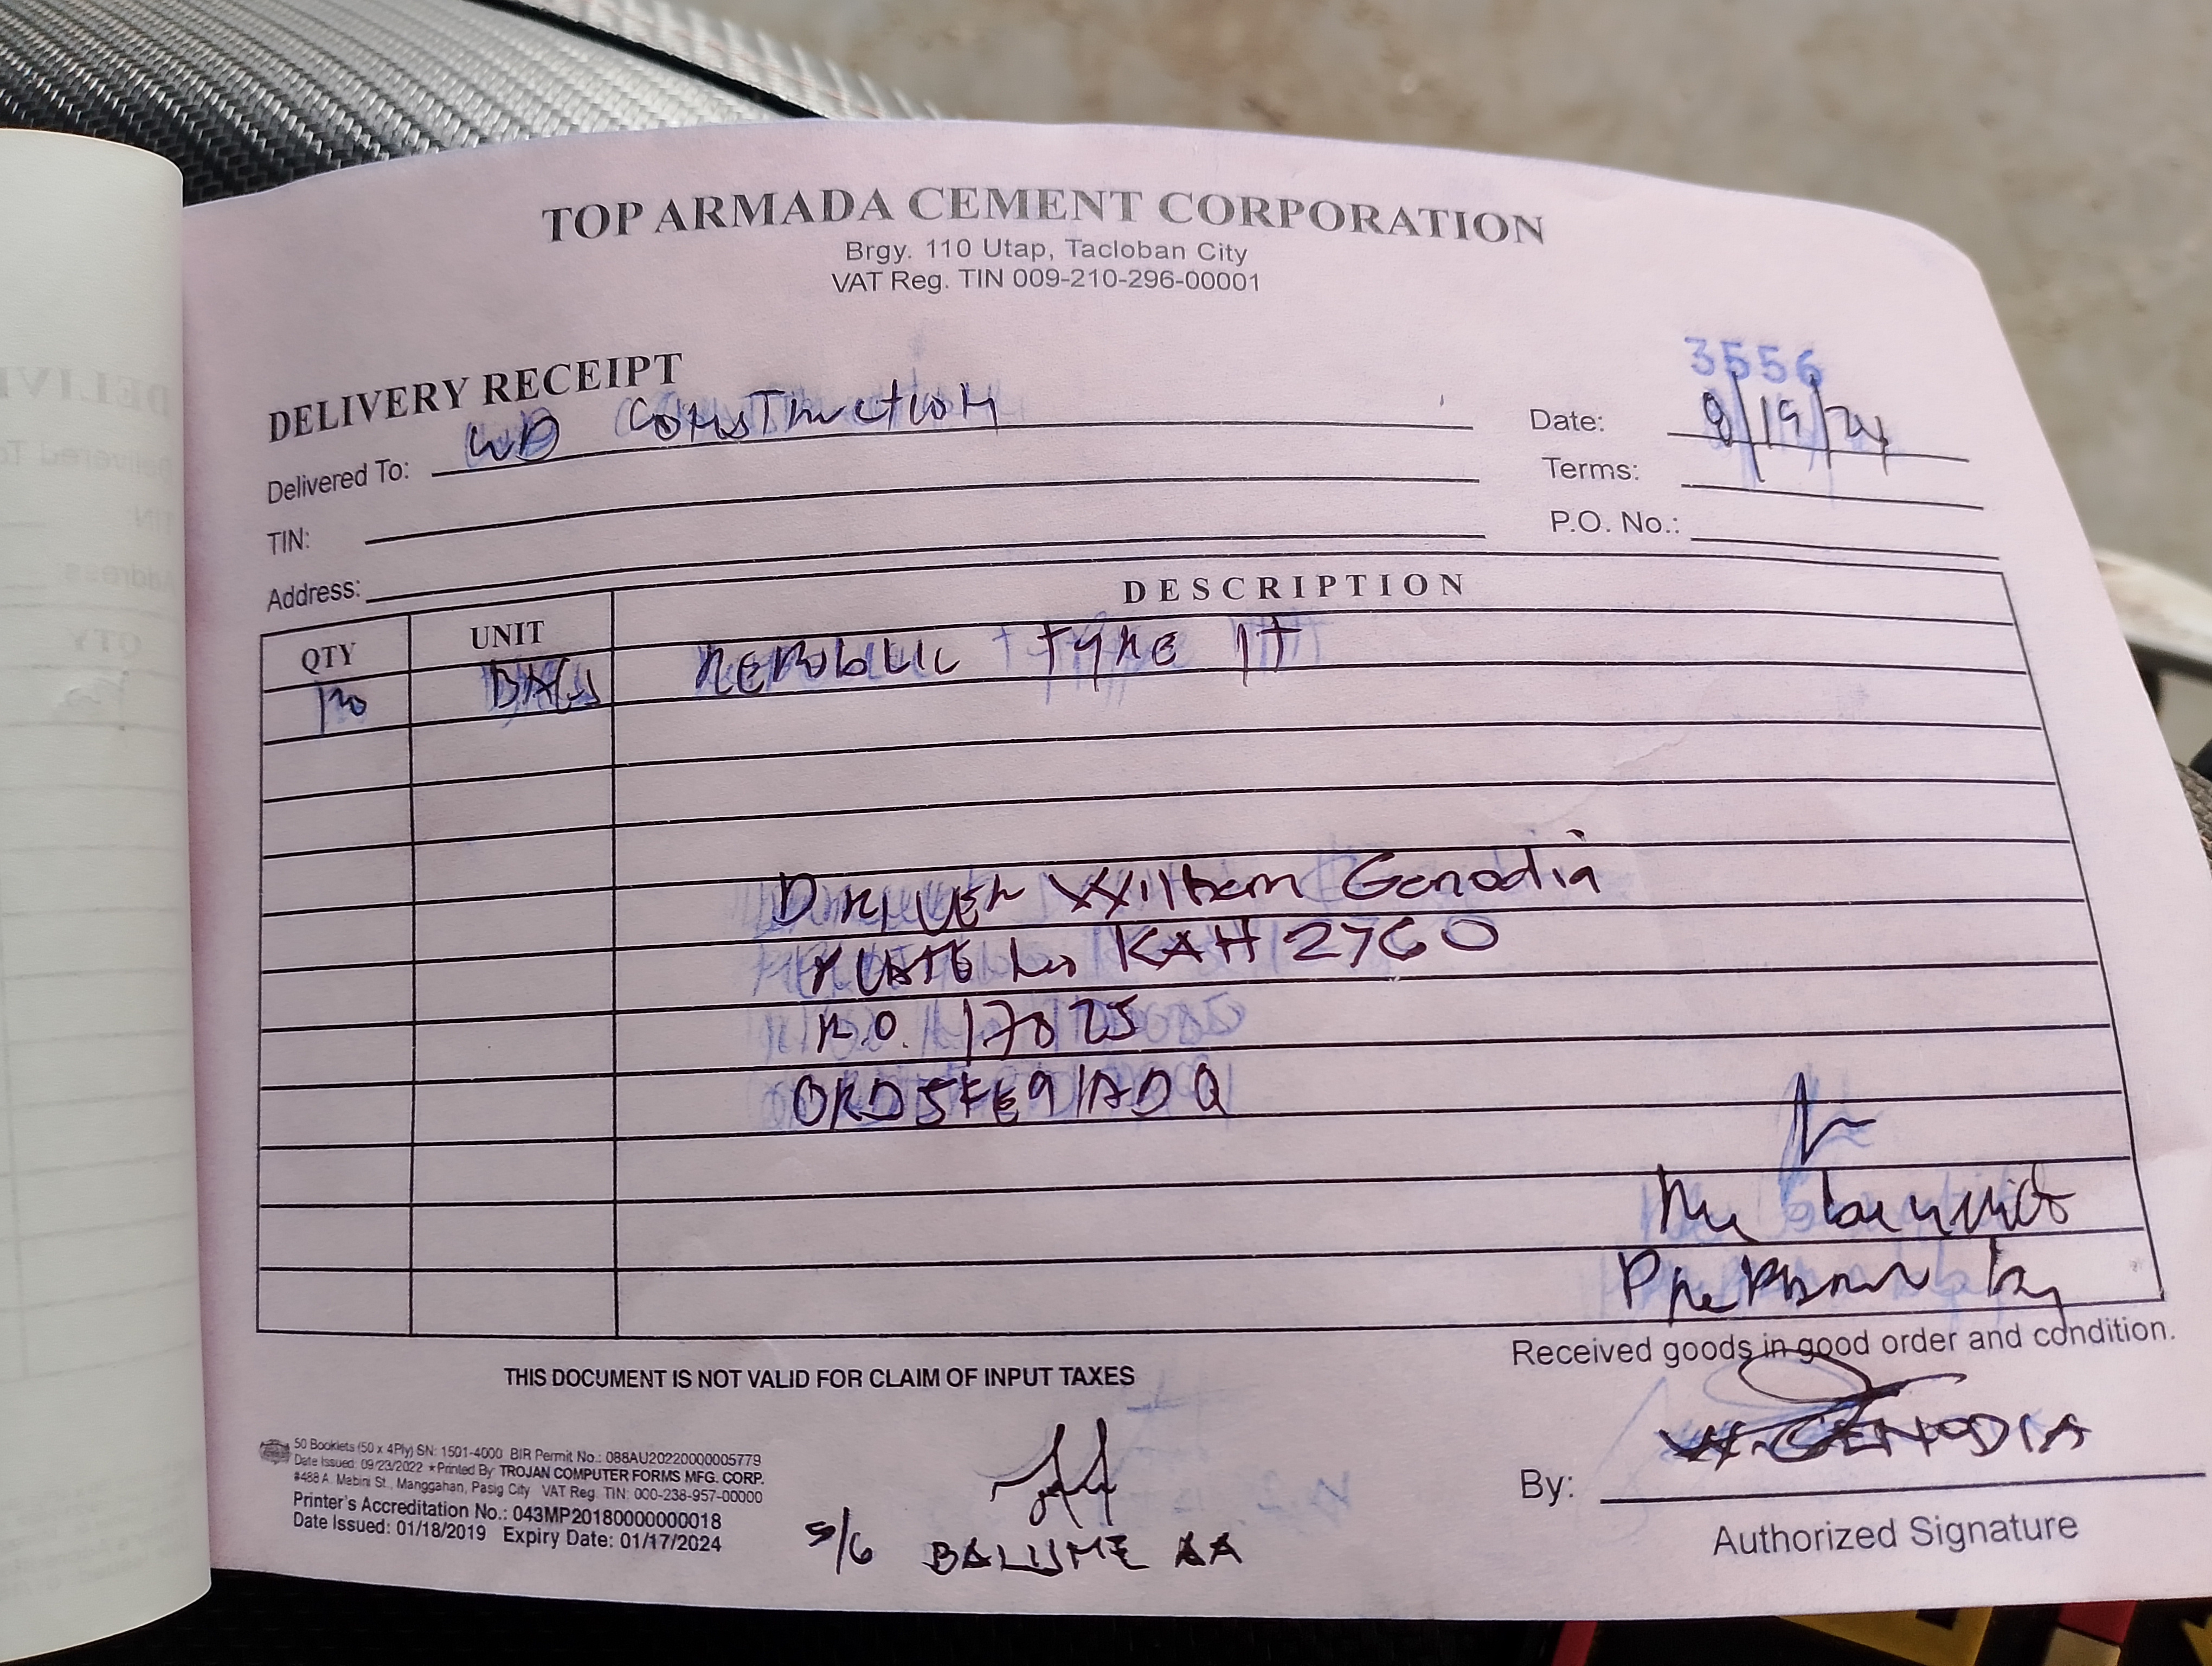 TOP ARMADA CEMENT CORPORATION
Brgy. 110 Utap, Tacloban City
VAT Reg. TIN 009-210-296-00001
3556
DELIVERY RECEIPT
Delivered To: WD CONSTRUCTION
Date: 8/19/24
TIN:
Terms:
Address:
P.O. No.:
QTY UNIT DESCRIPTION
BAGS REPUBLIC TYPE 1T
DRIVER Wilbern Genodia
PLATE No KAH 2760
P.O. 17825
ORD5FE91ADQ
Prepared by
Received goods in good order and condition.
THIS DOCUMENT IS NOT VALID FOR CLAIM OF INPUT TAXES
W. GENODIA
By:
Authorized Signature
50 Booklets (50 x 4Ply) SN: 1501-4000 BIR Permit No.: 088AU20220000005779
Date Issued: 09/23/2022 ★Printed By: TROJAN COMPUTER FORMS MFG. CORP.
#488 A. Mabini St., Manggahan, Pasig City VAT Reg. TIN: 000-238-957-00000
Printer's Accreditation No.: 043MP20180000000018
Date Issued: 01/18/2019 Expiry Date: 01/17/2024
S/G BALUME AA